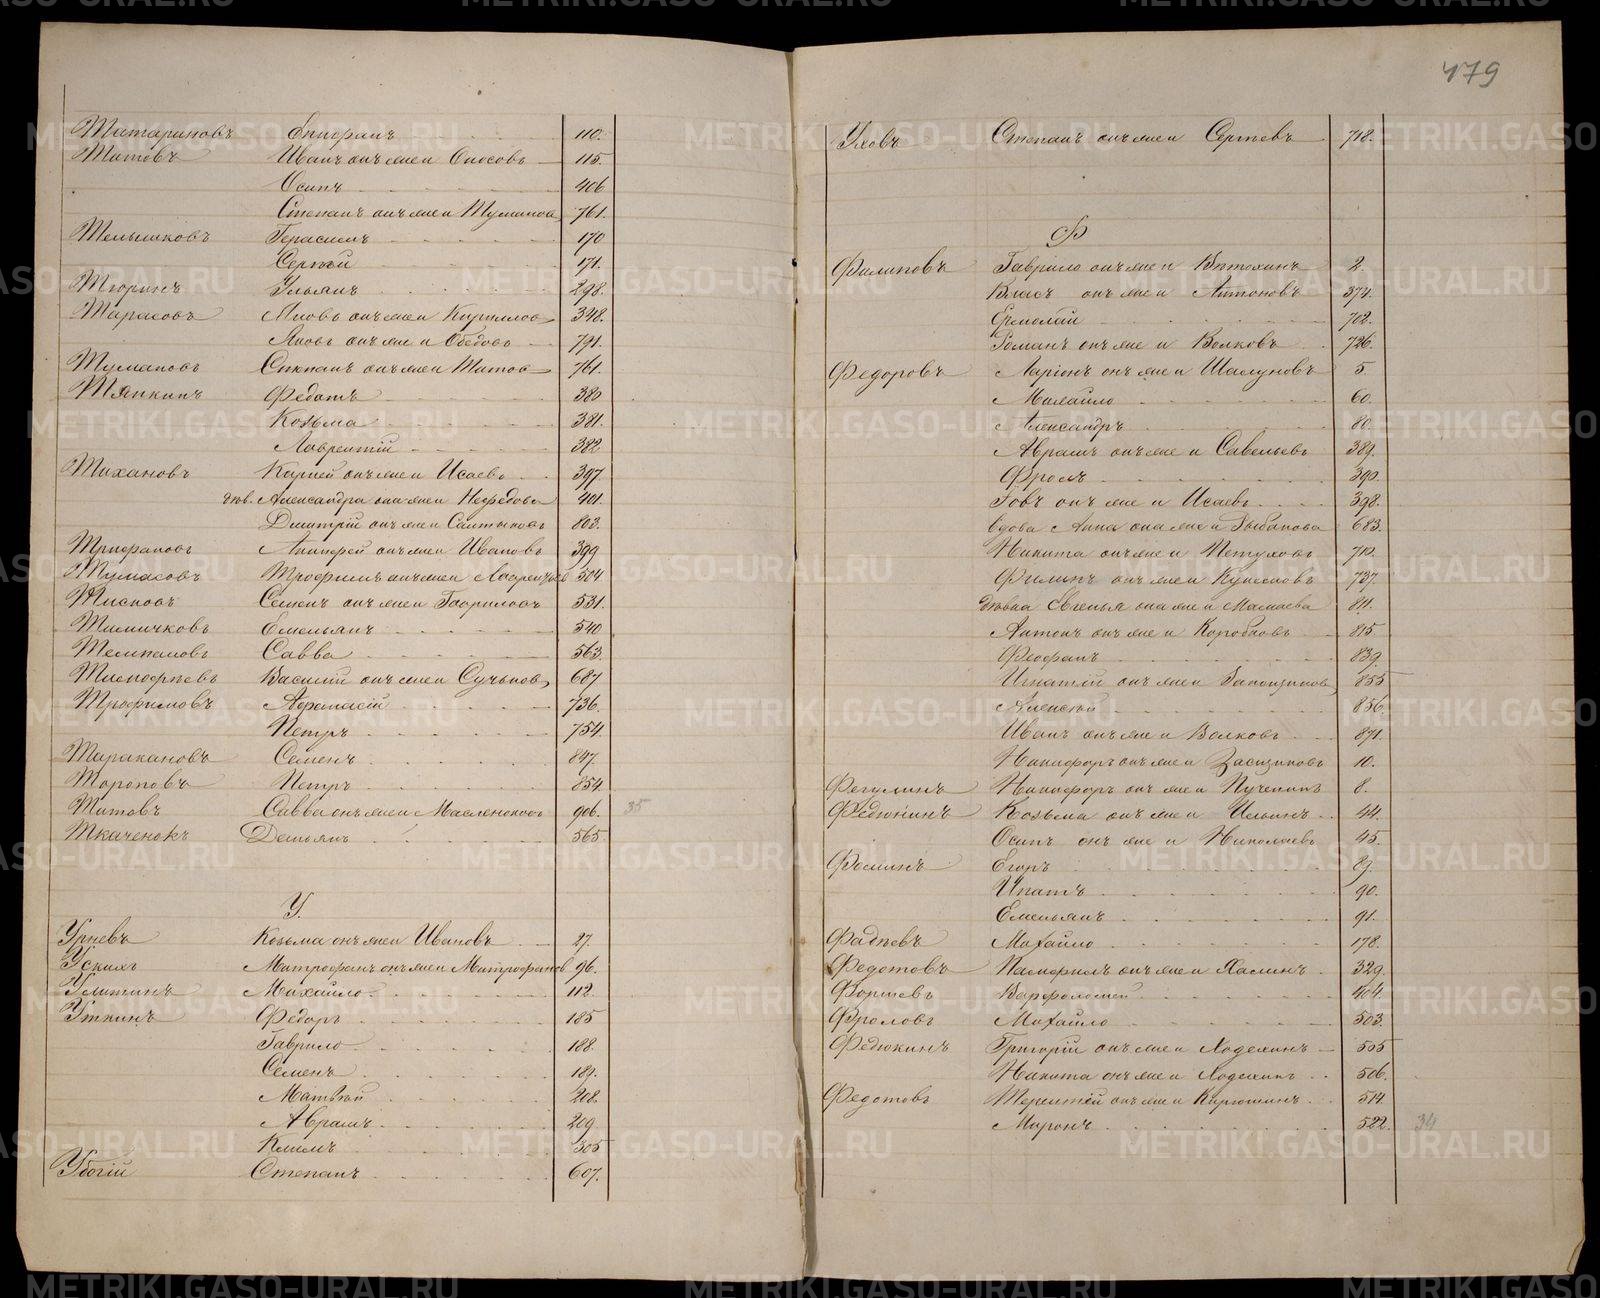 Татариновъ Епифанъ 110.
Титовъ Иванъ онъ же и Опосовъ 115.
Осипъ 406
Степанъ онъ же и Туманов 761.
Телышковъ Герасимъ 170
Сергѣй 171.
Тюринъ Ульянъ 298.
Тарасовъ Яковъ онъ же и Кирилловъ 348.
Яковъ онъ же и Обѣдовъ 791.
Тумановъ Степанъ онъ же и Титов 761.
Тяпкинъ Федотъ 380
Козьма 381.
Лаврентій 382
Тихановъ Карпей онъ же и Исаевъ 397
Александра она же и Нефедова 401.
Дмитрій онъ же и Салтыковъ 803.
Трифановъ Алимпей онъ же и Ивановъ 399
Тумасовъ Трофимъ онъ же и Лаврентьев 504.
Тисковъ Семенъ онъ же и Гавриловъ 531.
Тимичковъ Емельянъ 540
Телипановъ Савва 563.
Тимофѣевъ Василій онъ же и Сучьков 687
Трофимовъ Афанасій 736.
Петръ 754
Таракановъ Семенъ 847.
Тороповъ Петръ 854.
Титовъ Савва онъ же и Маслениковъ 906. 35
Ткаченокъ Демьянъ 565.
У.
Урневъ Козьма онъ же и Ивановъ 27.
Ускихъ Митрофанъ онъ же и Митрофанов 96.
Улитинъ Михайло 112.
Уткинъ Федоръ 185
Гаврило 188.
Семенъ 189.
Матвѣй 208.
Аврамъ 209
Климъ 305
Убогій Степанъ 607.
479
Уховъ Степанъ онъ же и Сергѣевъ 718.
Ф
Филиповъ Гаврило онъ же и Витохинъ 2.
Власъ онъ же и Антоновъ 374.
Ермолай 702.
Романъ онъ же и Волковъ 726.
Федоровъ Ларіонъ онъ же и Шалуновъ 5
Михайло 60.
Александръ 80
Аврамъ онъ же и Савельевъ 389.
Фролъ 390.
Іовъ онъ же и Исаевъ 398.
вдова Анна она же и Рыбакова 683.
Никита онъ же и Петуховъ 710.
Филипъ онъ же и Куненовъ 737.
дѣвка Евгенья она же и Мамаева 811.
Антонъ онъ же и Коробковъ 815
Феофанъ 839.
Игнатій онъ же и Запонзинов 855
Алексѣй 856.
Иванъ онъ же и Волковъ 871.
Никифоръ онъ же и Засыпкинъ 10.
Фегулинъ Никифоръ онъ же и Пученинъ 8.
Федюнинъ Козьма онъ же и Ильинъ 44.
Осипъ онъ же и Николаевъ 45.
Фоминъ Егоръ 89.
Ипатъ 90.
Емельянъ 91.
Фадѣевъ Михайло 178.
Федотовъ Памфилъ онъ же и Халинъ 329.
Фортевъ Варфоломей 404.
Фроловъ Михайло 503.
Федюкинъ Григорій онъ же и Лодехинъ 505
Никита онъ же и Лодехинъ 506.
Федотовъ Терентій онъ же и Кирюшинъ 514.
Миронъ 522. 34